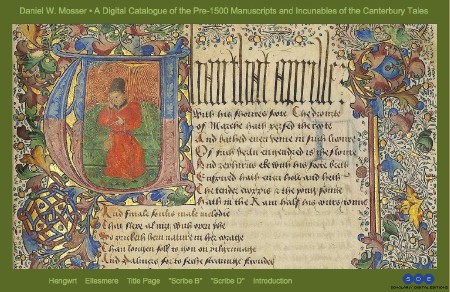 Daniel W. Mosser • A Digital Catalogue of the Pre-1500 Manuscripts and Incunables of the Canterbury Tales
Whan that aprille
With his shoures sote The drouȝte
of Marche hath persed the rote
And bathed euery veyne in such licour
Of such vertu engendred is the flour
And zephirus eke with his sote breth
Enspired hath euery holt and heth
The tendre croppis & the yong sonne
Hath in the Ram half his cours yronne
And smale foulis make melodie
That slepe al nyȝt with open yhe
So priketh hem nature in her corage
Than longen folk to gon on pilgrimage
And palmers for to seche straunge strondes
Hengwrt Ellesmere Title Page "Scribe B" "Scribe D" Introduction
SDE
SCHOLARLY DIGITAL EDITIONS